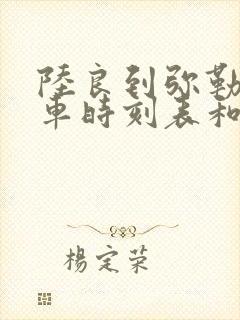 陸良到弥勒
車時刻表和
楊定荣